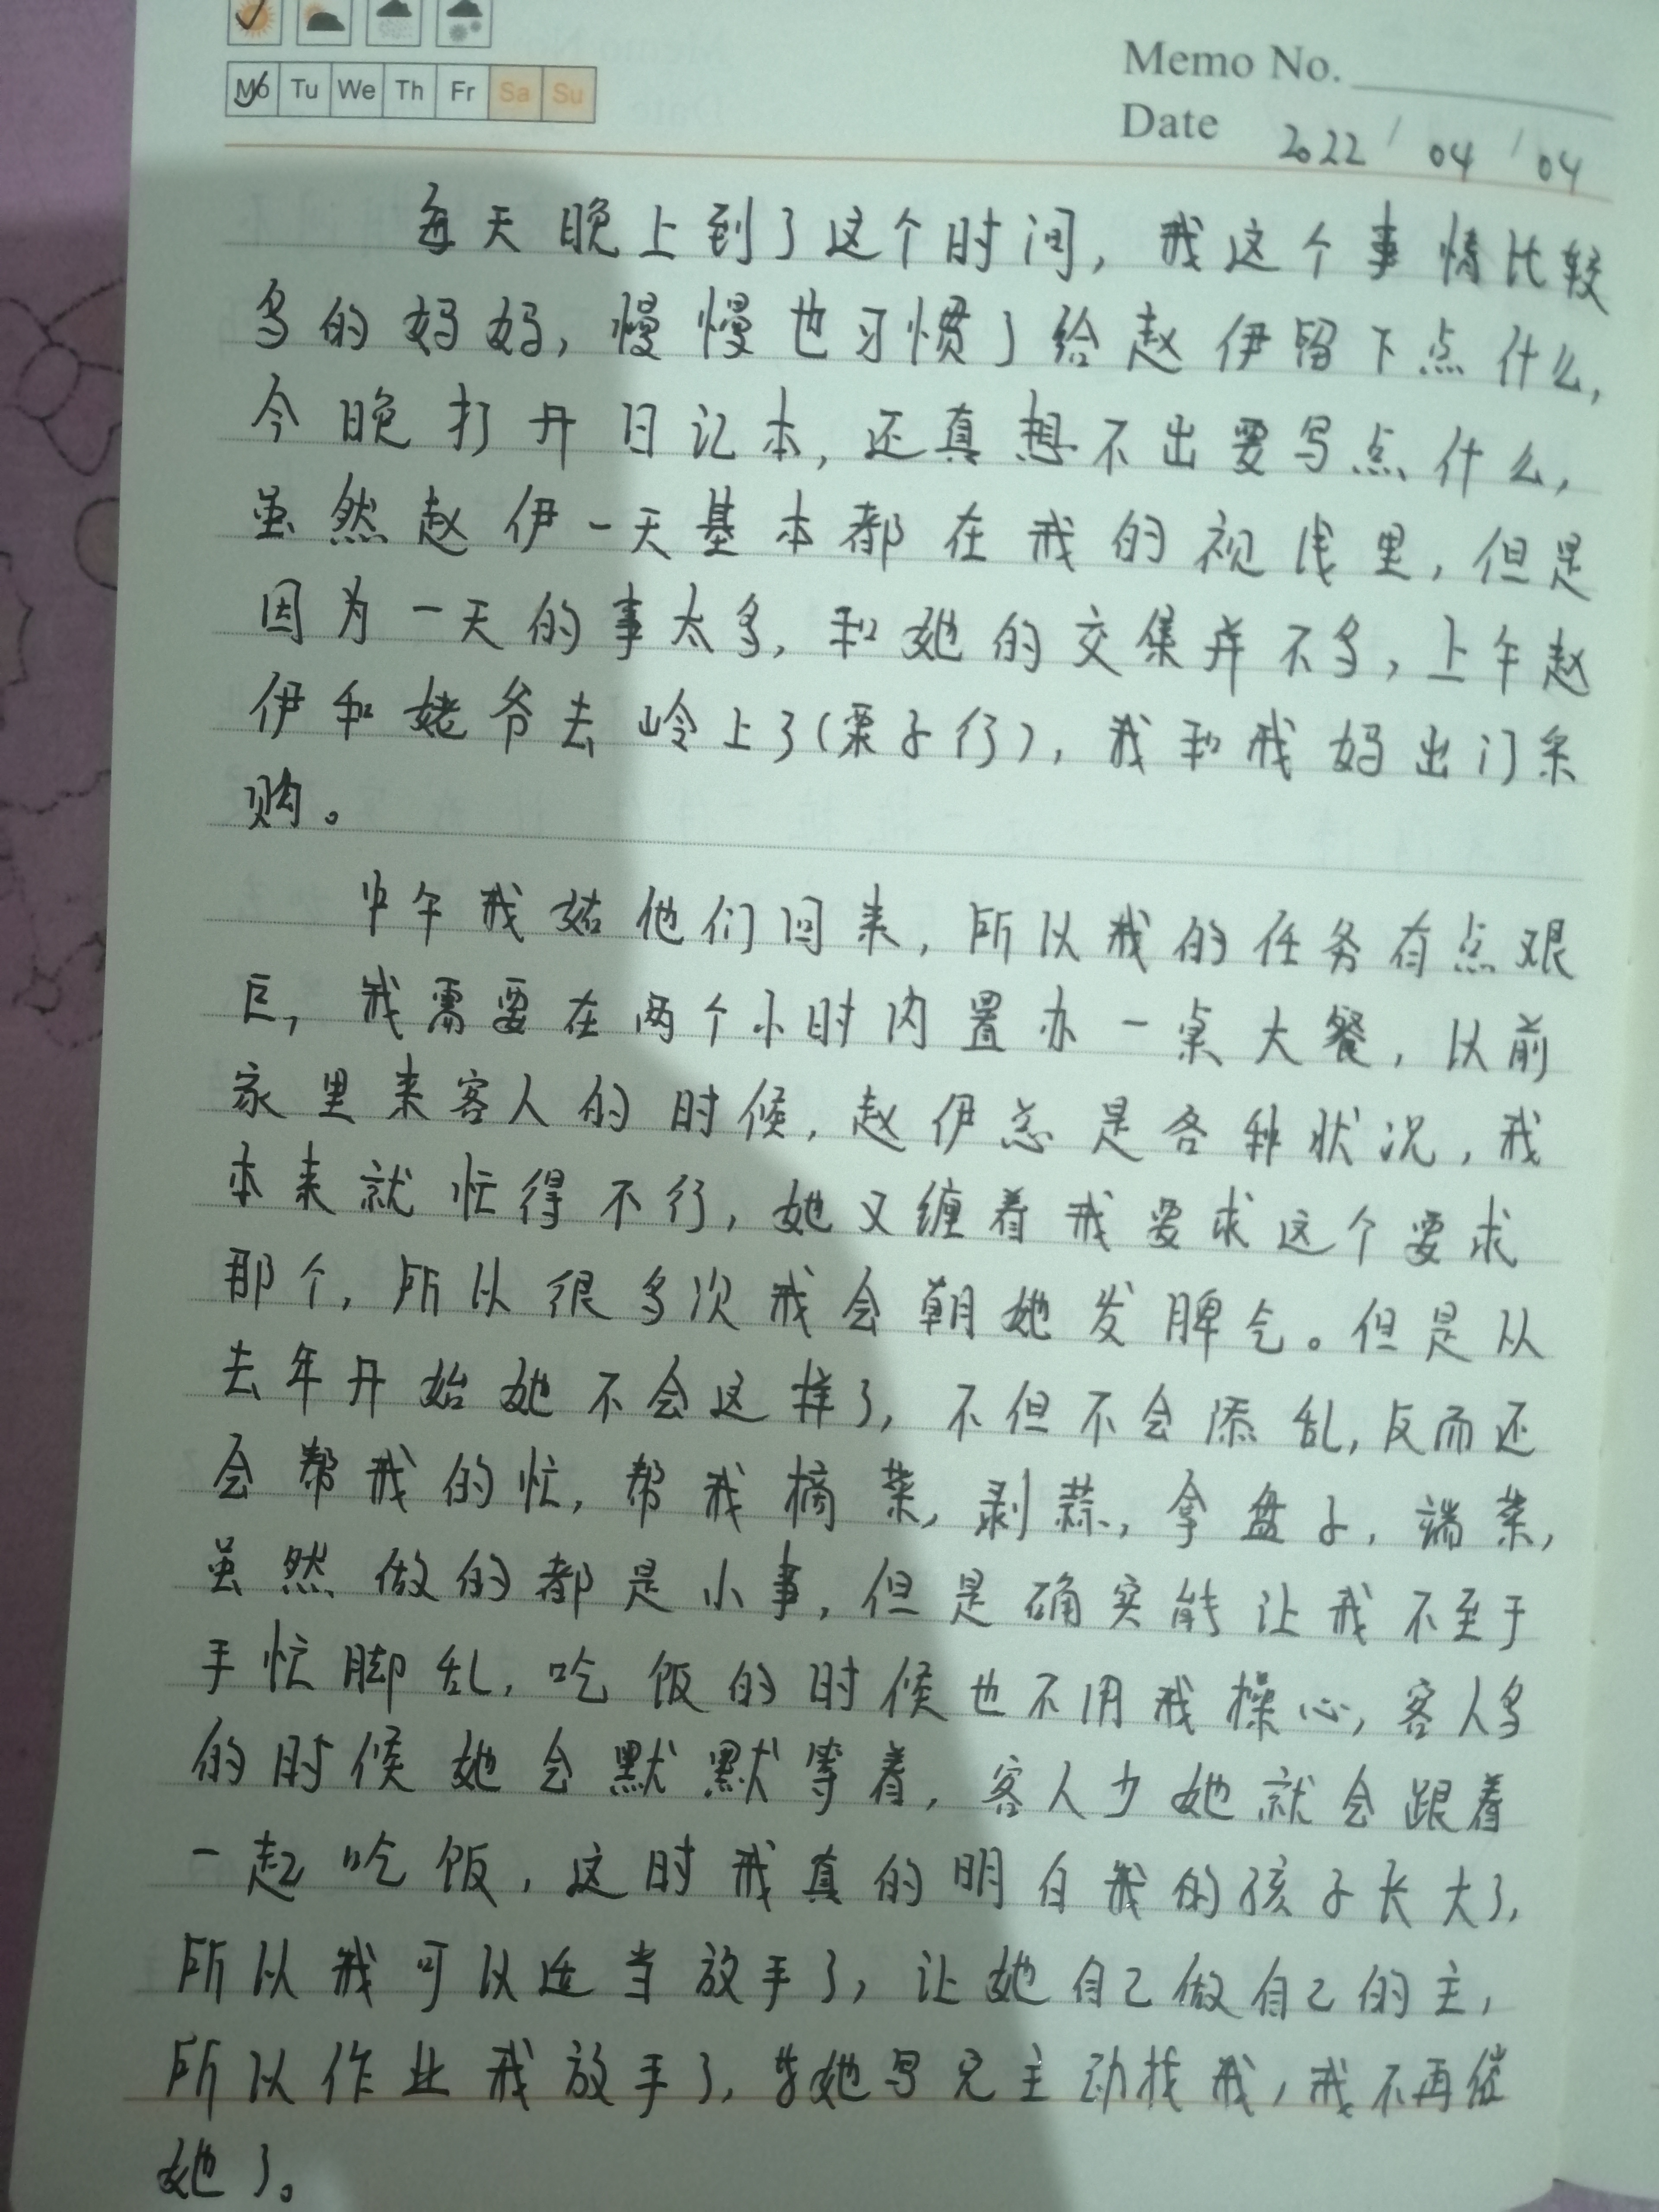 Mo Tu We Th Fr Sa Su
Memo No.
Date 2022/04/04
每天晚上到了这个时间,我这个事情比较
多的妈妈,慢慢也习惯了给赵伊留下点什么,
今晚打开日记本,还真想不出要写点什么,
虽然赵伊一天基本都在我的视线里,但是
因为一天的事太多,和她的交集并不多,上午赵
伊和姥爷去岭上了(栗子行),我和我妈出门采
购。
中午我姑他们回来,所以我的任务有点艰
巨,我需要在两个小时内置办一桌大餐,以前
家里来客人的时候,赵伊总是各种状况,我
本来就忙得不行,她又缠着我要求这个要求
那个,所以很多次我会朝她发脾气。但是从
去年开始她不会这样了,不但不会添乱,反而还
会帮我的忙,帮我摘菜,剥蒜,拿盘子,端菜,
虽然做的都是小事,但是确实能让我不至于
手忙脚乱,吃饭的时候也不用我操心,客人多
的时候她会默默等着,客人少她就会跟着
一起吃饭,这时我真的明白我的孩子长大了,
所以我可以适当放手了,让她自己做自己的主,
所以作业我放手了,她写完主动找我,我不再催
她了。